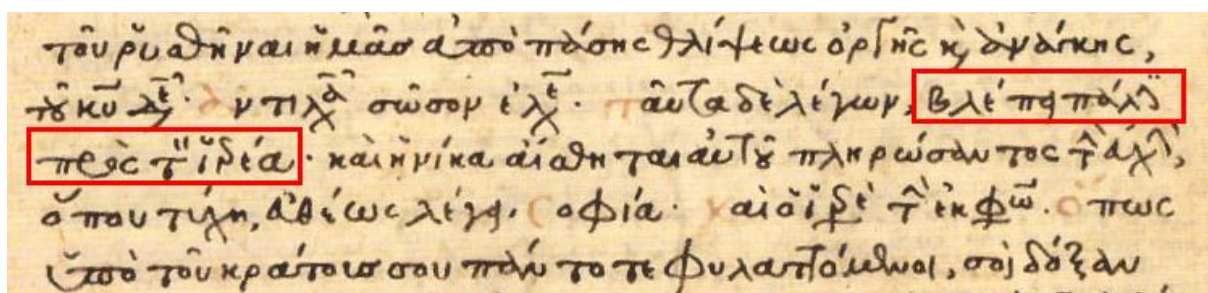 τοῦ ρυσθῆναι ἡμᾶσ ἀπὸ πάσης θλίψεως ὀργῆς κ ἀνάγκης,
τοῦ κυ δε. ἀντιλα σῶσον ἐλε. ταῦτα δὲ λέγων, βλέπει πάλι
πρὸς τ ἱερέα. καὶ ἡνίκα αἴσθηται αὐτοῦ πληρώσαντος τ εὐχ,
ὅπου τύχη, εὐθέως λέγει. Σοφία. καὶ ὁ ἱερε τ ἐκφω. Ὅπως
ὑπὸ τοῦ κράτουσ σου πάντοτε φυλαττόμενοι, σοὶ δόξαν